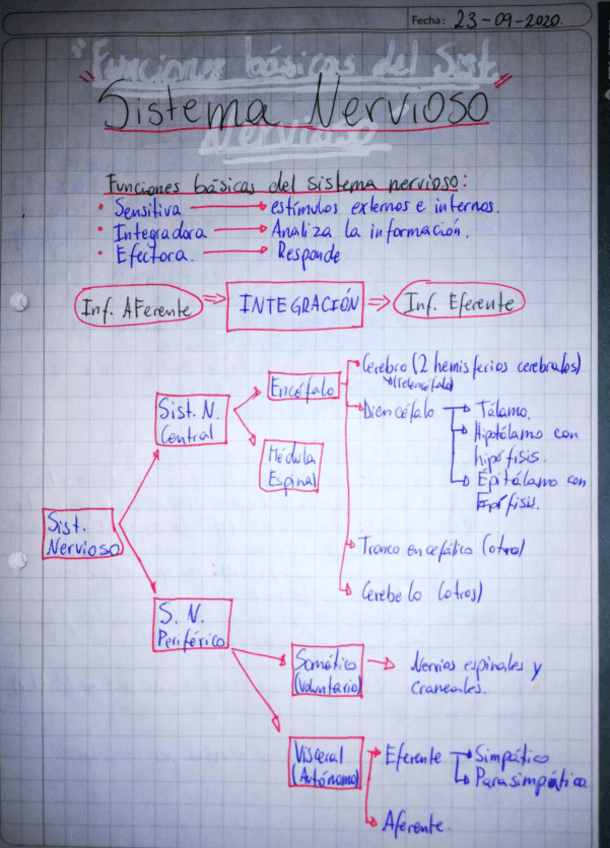 Fecha: 23-09-2020.
"Funciones básicas del Sist."
Nervioso
Sistema Nervioso
Funciones básicas del sistema nervioso:
• Sensitiva → estímulos externos e internos.
• Integradora → Analiza la información.
• Efectora. → Responde
Inf. AFerente ⇒ INTEGRACIÓN ⇒ Inf. Eferente
Sist. N.
Central
Encéfalo
Cerebro (2 hemisferios cerebrales)
(telencéfalo)
Diencéfalo → Tálamo.
Hipotálamo con
hipófisis.
Epitálamo con
Epífisis.
Médula
Espinal
Sist.
Nervioso
Tronco encefático (otros)
Cerebelo (otros)
S. N.
Periférico
Somático
(Voluntario)
→ Nervios espinales y
craneales.
Visceral
(Autónomo)
Eferente → Simpático
Parasimpático
Aferente.